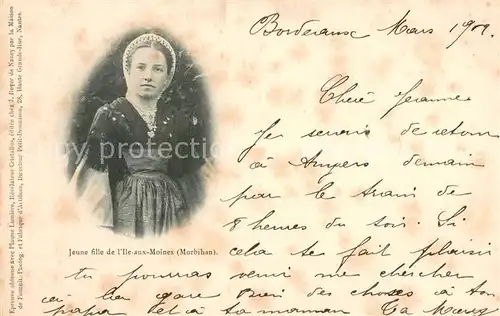 Bordeaux Mars 1901
Chère Jeanne
Je serais de retour
à Angers demain
par le train de
8 heures du soir. Si
cela te fait plaisir
tu pourras venir me chercher
à la gare Bien des choses à ton
papa et à ta maman Ta
Jeune fille de l'Ile-aux-Moines (Morbihan).
Epreuve obtenue avec Plaque Lumière, Révélateur Cristallos, édité par la Maison
de Fournit. Photog. et Fabrique d'Artillons, Directeur Petit-Demange, 28, Haute Grande-Rue, Nantes.
depositphotos